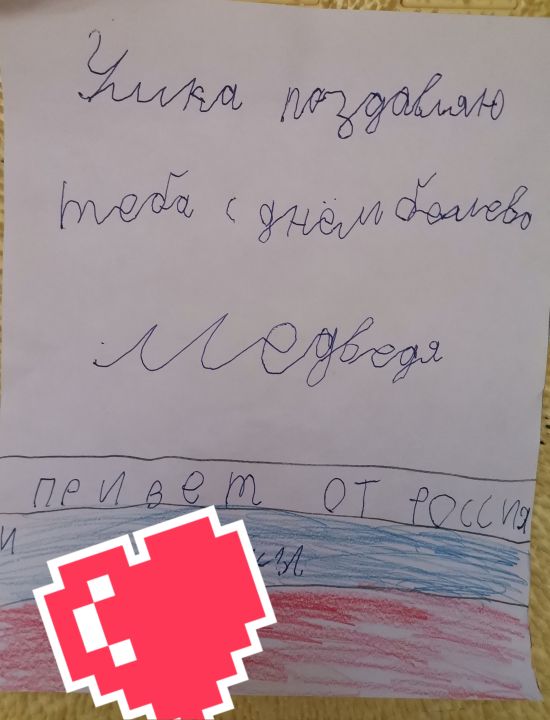 Улика поздавляю
теба с днём белево
Медведя
ПРИВЕТ ОТ РОССИЯ
И